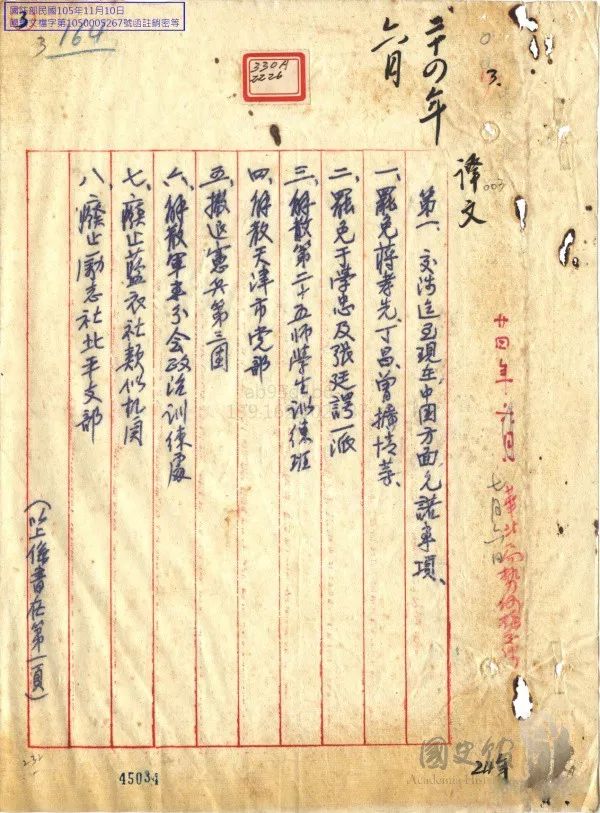 國防部民國105年11月10日
國文檔字第1050005267號函註銷密等
3
3
164
330A
2226
二十四年
六月
3.
譯文
003
第一、交涉迄至現在中國方面允諾事項、
一、罷免蔣孝先丁昌曾擴情等、
二、罷免于学忠及張廷諤一派
三、解散第二十五師學生訓練班
四、解散天津市党部
五、撤退憲兵第三團
六、解散軍事分会政治訓練處
七、廢止藍衣社類似机関
八、廢止勵志社北平支部
(以上係書在第一頁)
廿四年六月
七月六日
華北
45034
國史館
Academia Historica
24年